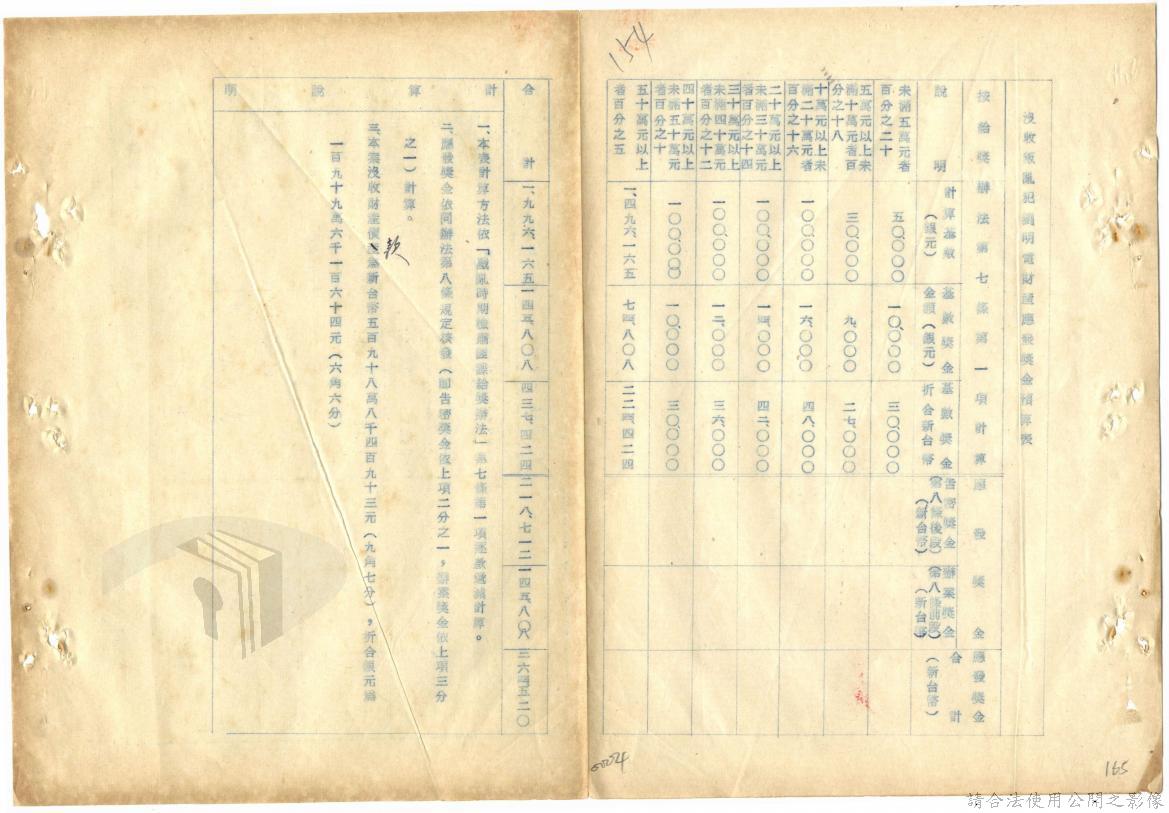 154
沒收叛亂犯趙明電財產應發獎金預算表
按給獎辦法第七條第一項計算
應發獎金
應發獎金合計(新台幣)
說明
計算基數(銀元)
基數獎金金額(銀元)
基數獎金折合新台幣
告密獎金(第八條後段)(新台幣)
辦案獎金(第八條前段)(新台幣)
未滿五萬元者百分之二十
五〇、〇〇〇
一〇、〇〇〇
三〇、〇〇〇
五萬元以上未滿十萬元者百分之十八
三〇、〇〇〇
九、〇〇〇
二七、〇〇〇
十萬元以上未滿二十萬元者百分之十六
一〇〇、〇〇〇
一六、〇〇〇
四八、〇〇〇
二十萬元以上未滿三十萬元者百分之十四
一〇〇、〇〇〇
一四、〇〇〇
四二、〇〇〇
三十萬元以上未滿四十萬元者百分之十二
一〇〇、〇〇〇
一二、〇〇〇
三六、〇〇〇
四十萬元以上未滿五十萬元者百分之十
一〇〇、〇〇〇
一〇、〇〇〇
三〇、〇〇〇
五十萬元以上者百分之五
一、四九六、一六五
七四、八〇八
二二四、四二四
合計
一、九九六、一六五
一四五、八〇八
四三七、四二四
二一八、七一二
一四五、八〇八
三六四、五二〇
計算說明
一、本表計算方法依「戡亂時期檢肅匪諜給獎辦法」第七條第一項逐款遞減計算。
二、應發獎金依同辦法第八條規定核發(即告密獎金依上項二分之一,辦案獎金依上項三分
之一)計算。
三、本案沒收財產價款為新台幣五百九十八萬八千四百九十三元(九角七分),折合銀元為
一百九十九萬六千一百六十四元(六角六分)
165
請合法使用公開之影像